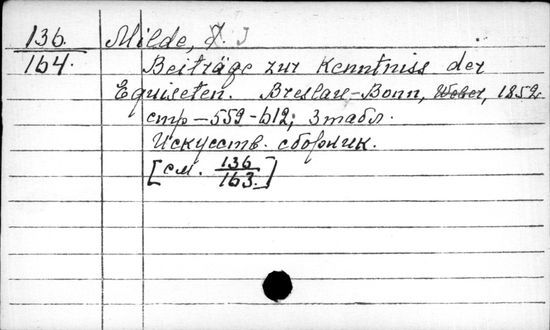 136. Milde, J.
164. Beiträge zur Kenntniss der
Equiseten. Breslau-Bonn, Weber, 1852.
стр-559-612; 3 табл.
Искусств. сборник.
[см. 136
163.]